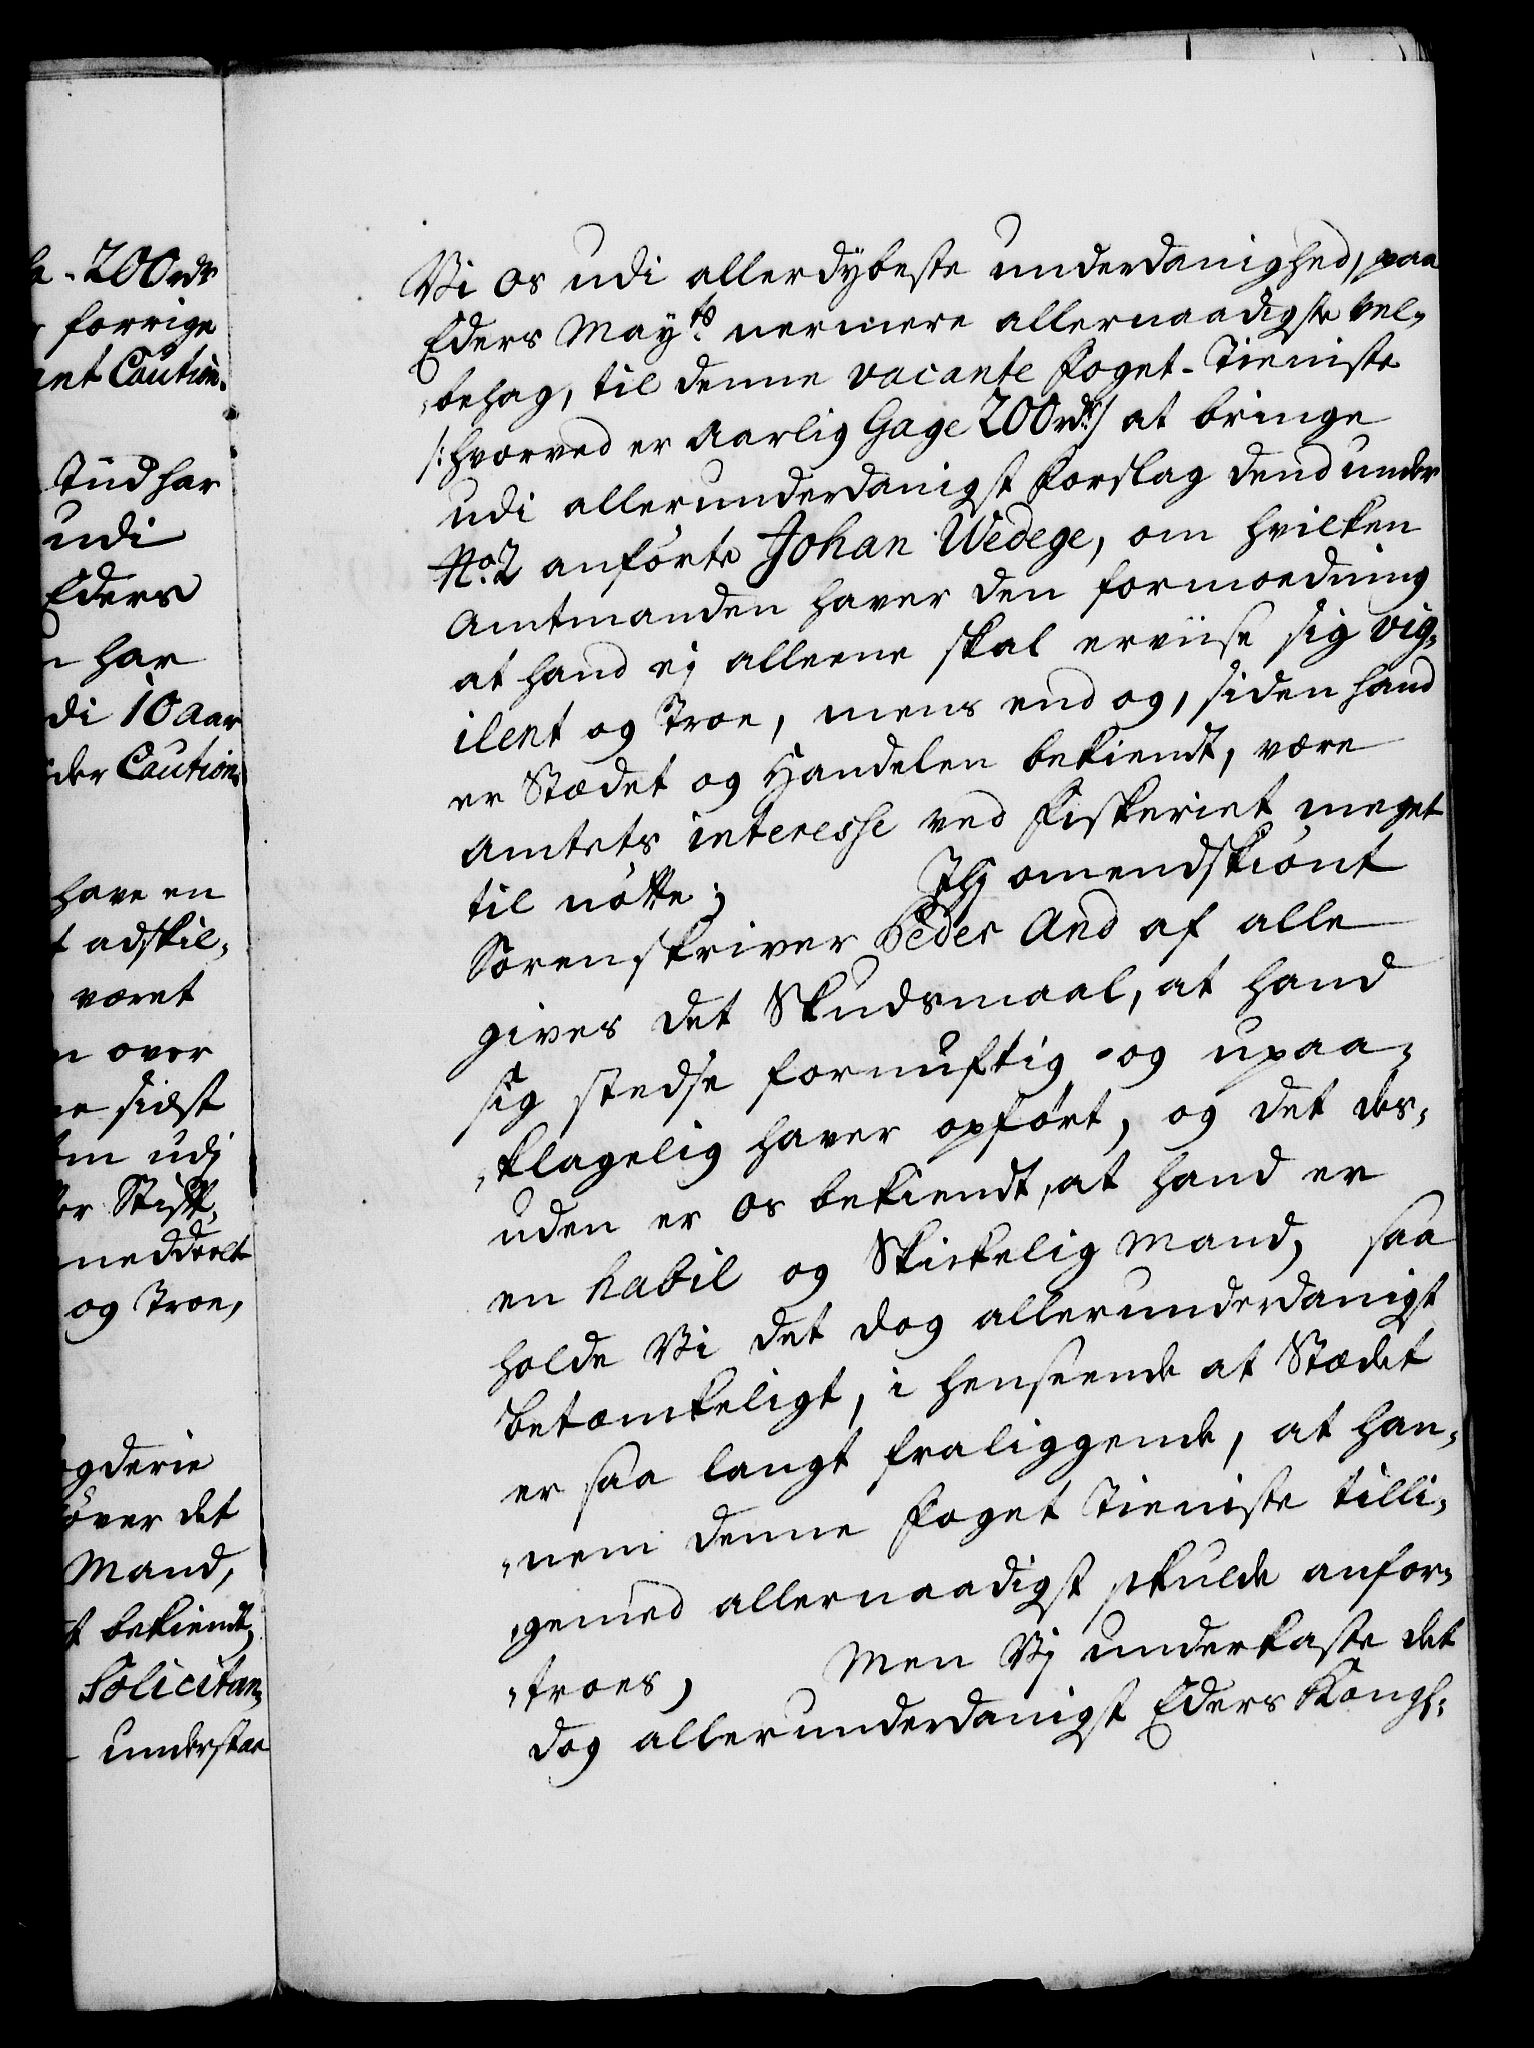 200 rdr
forrige
Caution.
Tiid har
udi
Eders
har
di 10 aar
der Caution,
have en
adskil,
været
over
sidst
udj
Stift,
meddeelt
og Troe,
over det
Mand,
bekiendt,
Solicitan,
understaa
Vi os udi allerdybeste underdanighed, paa
Eders Mayts nermere allernaadigste vel,
behag, til denne vacante foget-Tieniste
/: hvorved er aarlig Gage 200 rdr :/ at bringe
udi allerunderdanigst forslag dend under
No. 2 anförte Johan Wedege, om hvilken
Amtmanden haver den formoedning
at hand ej alleene skal erviise sig vig,
ilent og Troe, mens end og, siden hand
er Stædet og Handelen bekiendt, være
amtets interesse ved fiskeriet meget
til nötte;
Thj omendskiönt
Sorenskriver Peder And af alle
gives det Skudsmaal, at hand
sig stedse fornuftig og upaa,
klagelig haver opfört, og det des,
uden er os bekiendt, at hand er
en habil og Skikkelig Mand, saa
holde Vi det dog allerunderdanigst
betænkeligt, i henseende at Stædet
er saa langt fraliggende, at han,
nem denne foget Tieniste tilli,
gemed allernaadigst skulde anfor,
troes,
Men Vj underkaste det
dog allerunderdanigst Eders Kongl.